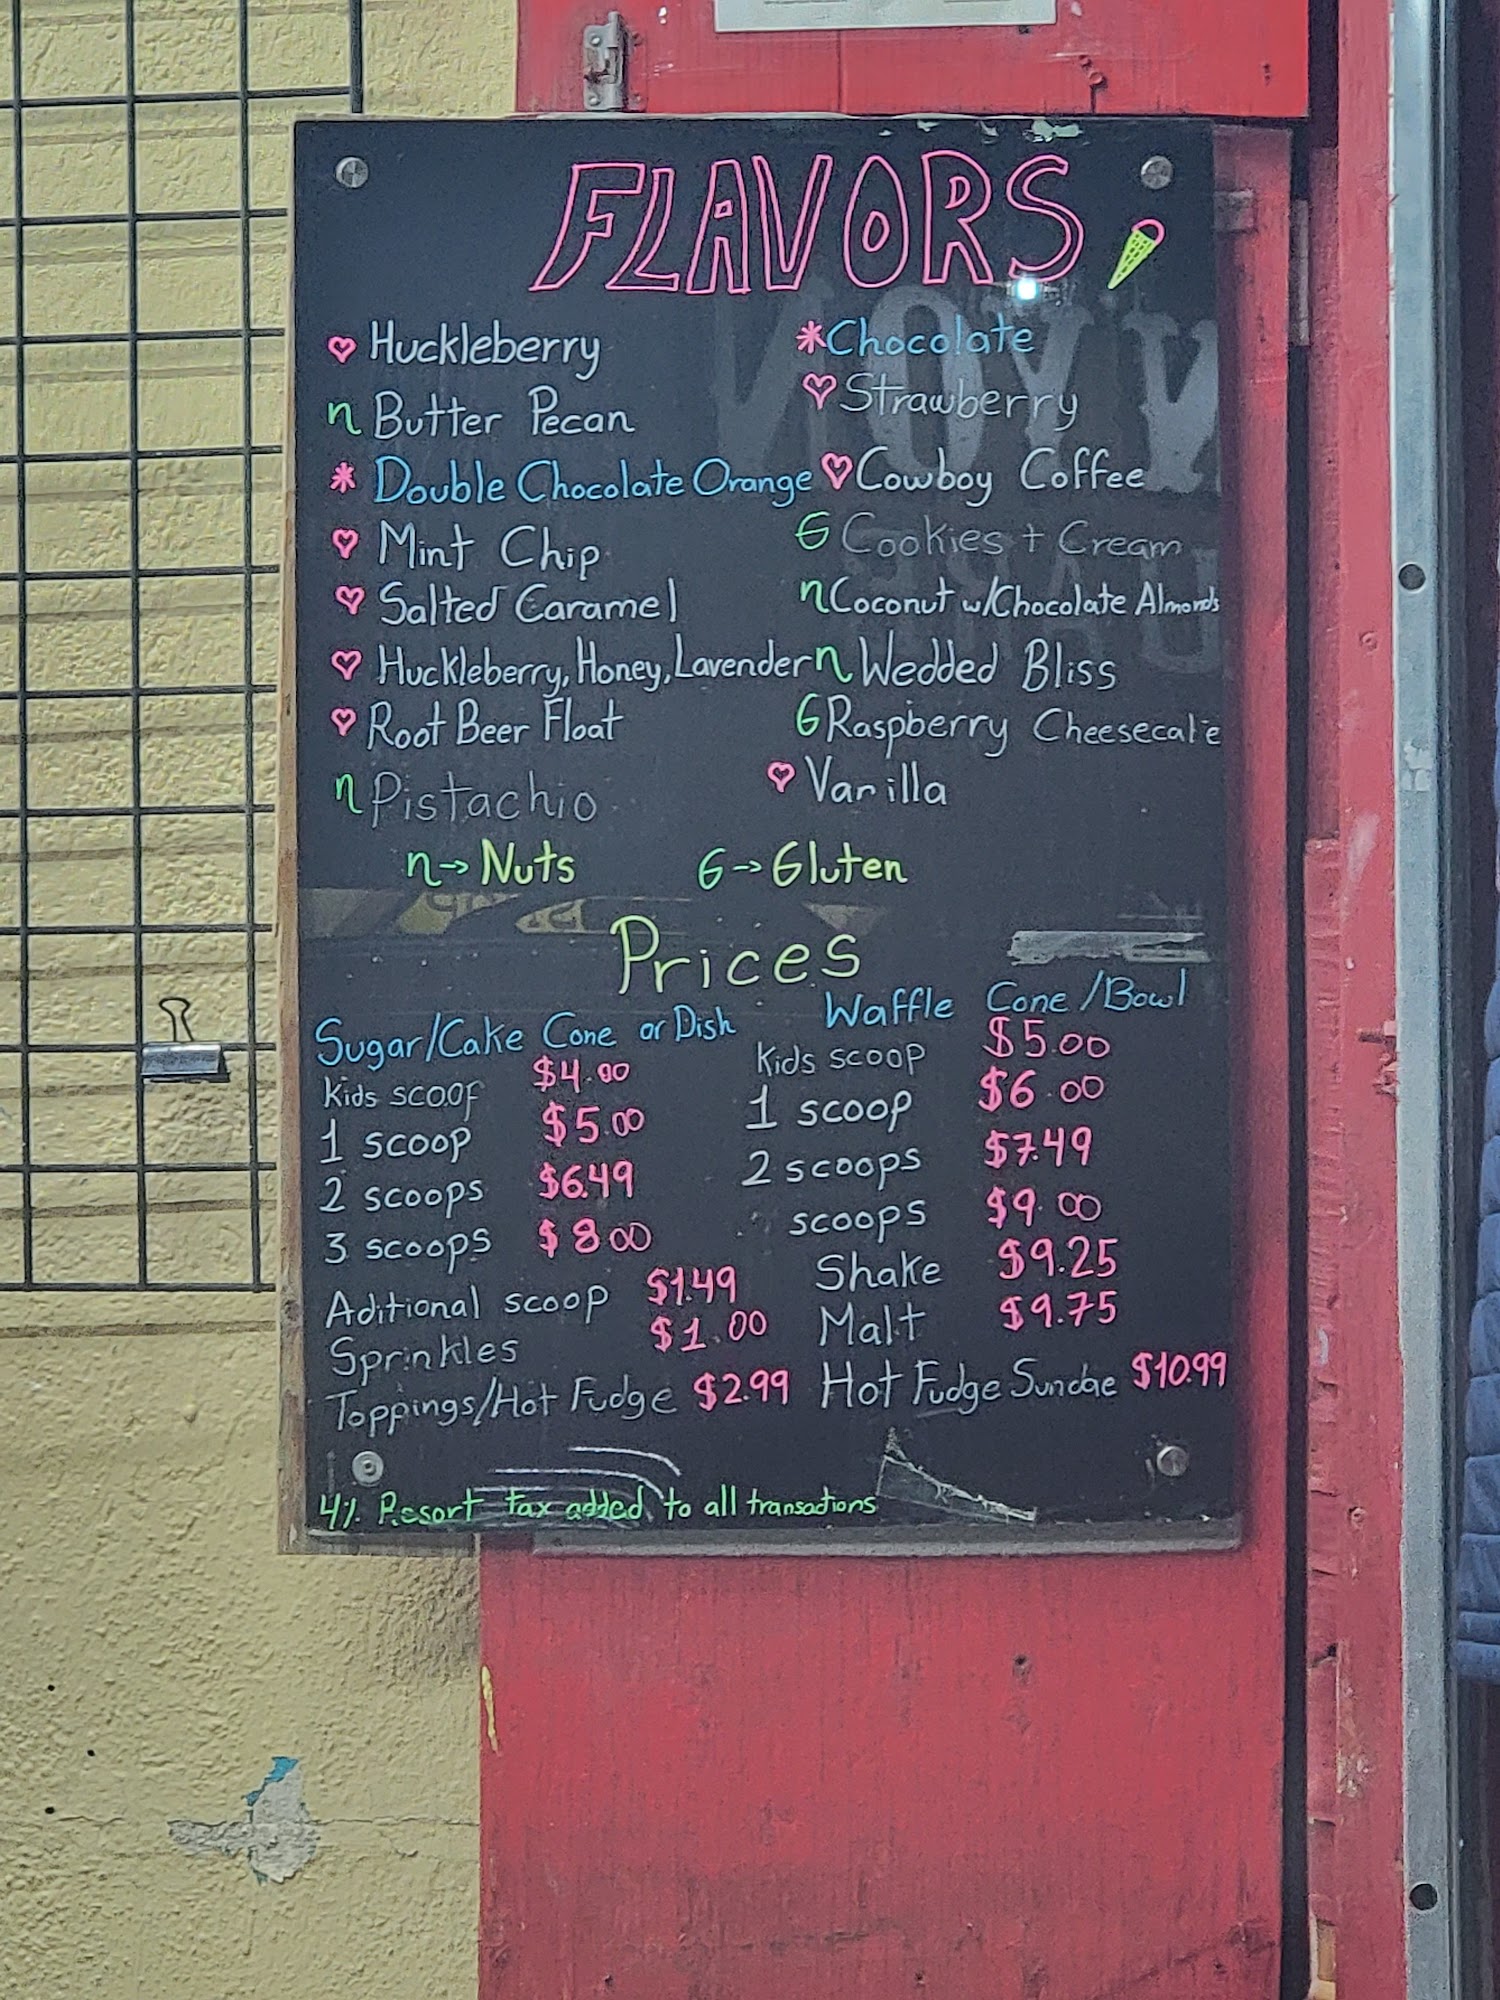 FLAVORS
Huckleberry
n Butter Pecan
* Double Chocolate Orange
Mint Chip
Salted Caramel
Huckleberry, Honey, Lavender
Root Beer Float
n Pistachio
*Chocolate
Strawberry
Cowboy Coffee
G Cookies + Cream
n Coconut w/Chocolate Almonds
n Wedded Bliss
G Raspberry Cheesecake
Vanilla
n→ Nuts
G→ Gluten
Prices
Sugar/Cake Cone or Dish
Kids scoop $4.00
1 scoop $5.00
2 scoops $6.49
3 scoops $8.00
Aditional scoop $1.49
Sprinkles $1.00
Toppings/Hot Fudge $2.99
Waffle Cone/Bowl
Kids scoop $5.00
1 scoop $6.00
2 scoops $7.49
scoops $9.00
Shake $9.25
Malt $9.75
Hot Fudge Sundae $10.99
4% Resort tax added to all transactions